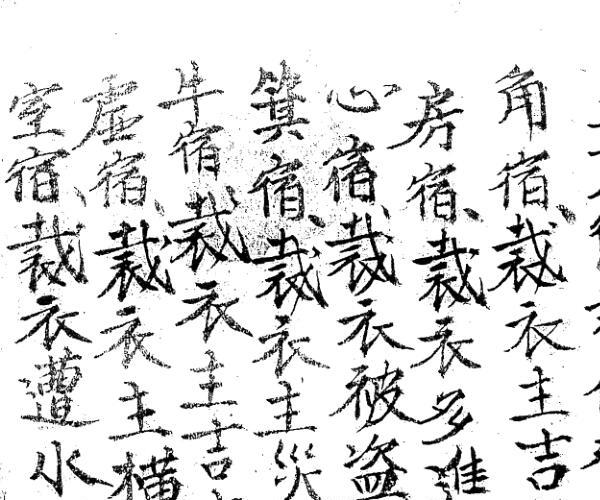 角宿、裁衣主吉
房宿、裁衣多進
心宿、裁衣被盜
箕宿、裁衣主災
牛宿裁衣主吉
虛宿、裁衣主橫
室宿、裁衣遭水